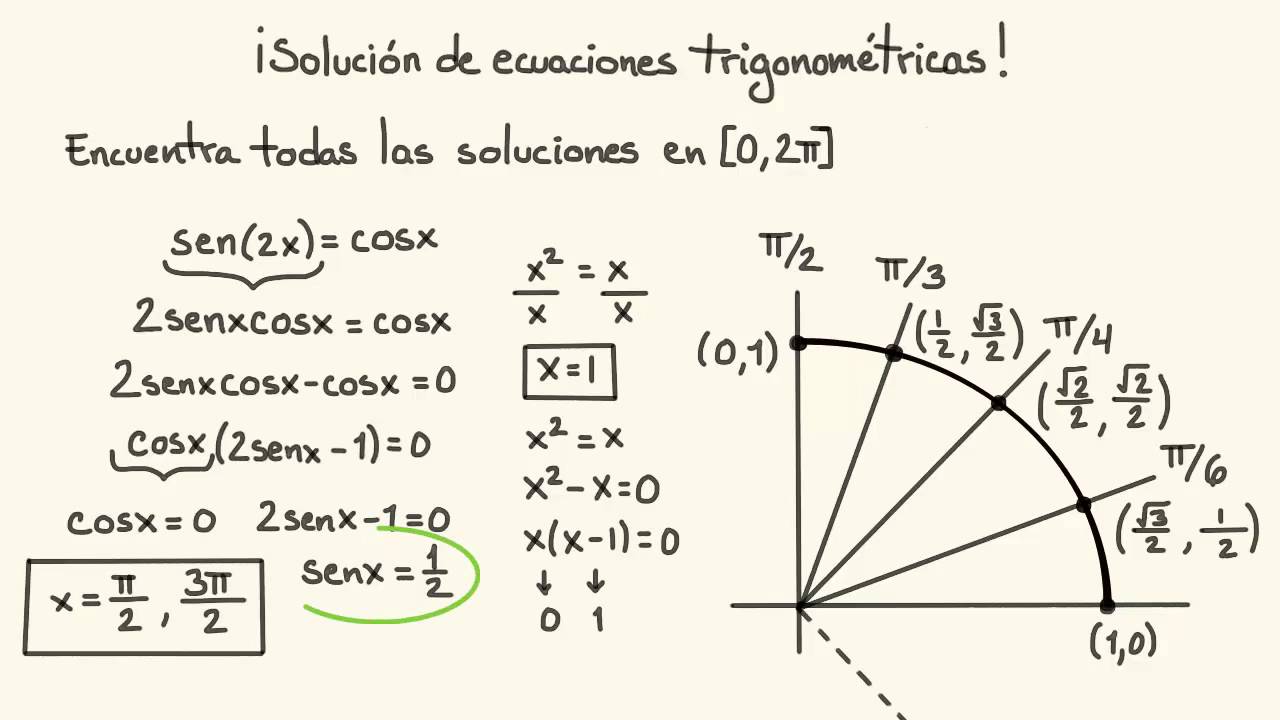 ¡Solución de ecuaciones trigonométricas!
Encuentra todas las soluciones en [0,2π]
sen(2x)=cosx
2senxcosx=cosx
2senxcosx-cosx=0
cosx(2senx-1)=0
cosx=0 2senx-1=0
senx=1/2
x=π/2, 3π/2
x²/x = x/x
x=1
x²=x
x²-x=0
x(x-1)=0
↓ ↓
0 1
π/2
π/3
(0,1)
(1/2, √3/2)
π/4
(√2/2, √2/2)
π/6
(√3/2, 1/2)
(1,0)